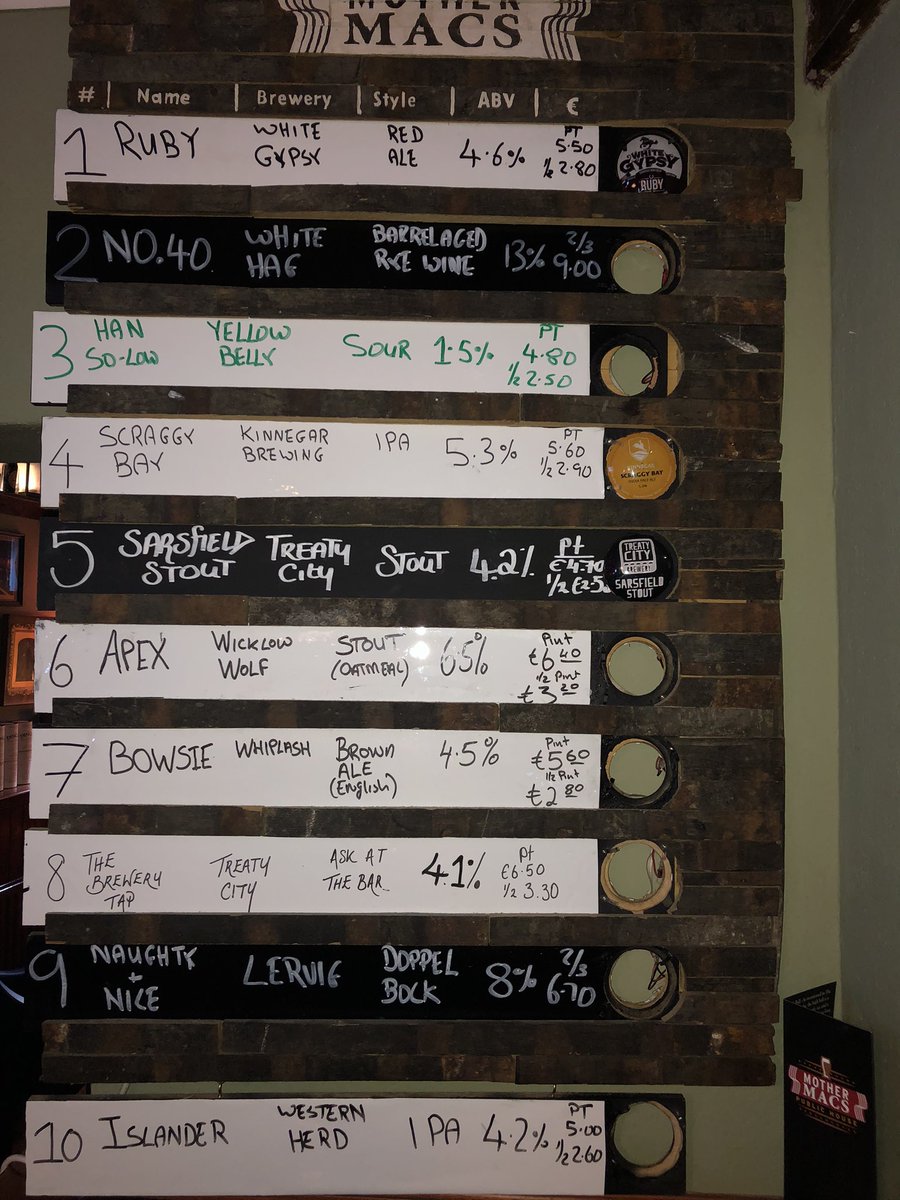 MOTHER
MACS
# | Name | Brewery | Style | ABV | €
1 RUBY WHITE GYPSY RED ALE 4.6% PT 5.50 ½ 2.80
WHITE GYPSY
RUBY
2 NO.40 WHITE HAG BARRELAGED RYE WINE 13% 2/3 9.00
3 HAN SO-LOW YELLOW BELLY SOUR 1.5% PT 4.80 ½ 2.50
4 SCRAGGY BAY KINNEGAR BREWING IPA 5.3% PT 5.60 ½ 2.90
KINNEGAR
SCRAGGY BAY
5 SARSFIELD STOUT TREATY CITY STOUT 4.2% Pt €4.70 ½ €2.50
TREATY
CITY
BREWERY
SARSFIELD
STOUT
6 APEX WICKLOW WOLF STOUT (OATMEAL) 6.5% Pint €6.40 ½ Pint €3.20
7 BOWSIE WHIPLASH BROWN ALE (English) 4.5% Pint €5.60 ½ Pint €2.80
8 THE BREWERY TAP TREATY CITY ASK AT THE BAR 4.1% Pt €6.50 ½ 3.30
9 NAUGHTY + NICE LERVIG DOPPEL BOCK 8% 2/3 6.70
10 ISLANDER WESTERN HERD IPA 4.2% PT 5.00 ½ 2.60
MOTHER
MACS
PUBLIC HOUSE